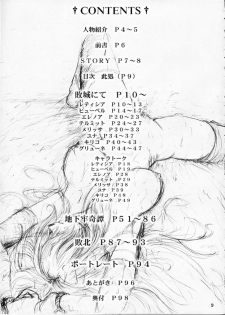 † CONTENTS †
人物紹介 P4〜5
前書 P6
STORY P7〜8
目次 此処(P9)
敗城にて P10〜
レティシア P10〜13
ヒューベル P14〜19
エレノア P20〜23
テルミット P24〜27
メリッサ P30〜33
ユナ P34〜37
キリコ P40〜43
グリューネ P44〜47
キャラトーク
レティシア P18
ヒューベル P19
エレノア P28
テルミット P29
メリッサ P38
ユナ P39
キリコ P48
グリューネ P49
地下牢奇譚 P51〜86
敗北 P87〜93
ポートレート P94
あとがき P96
奥付 P98
9